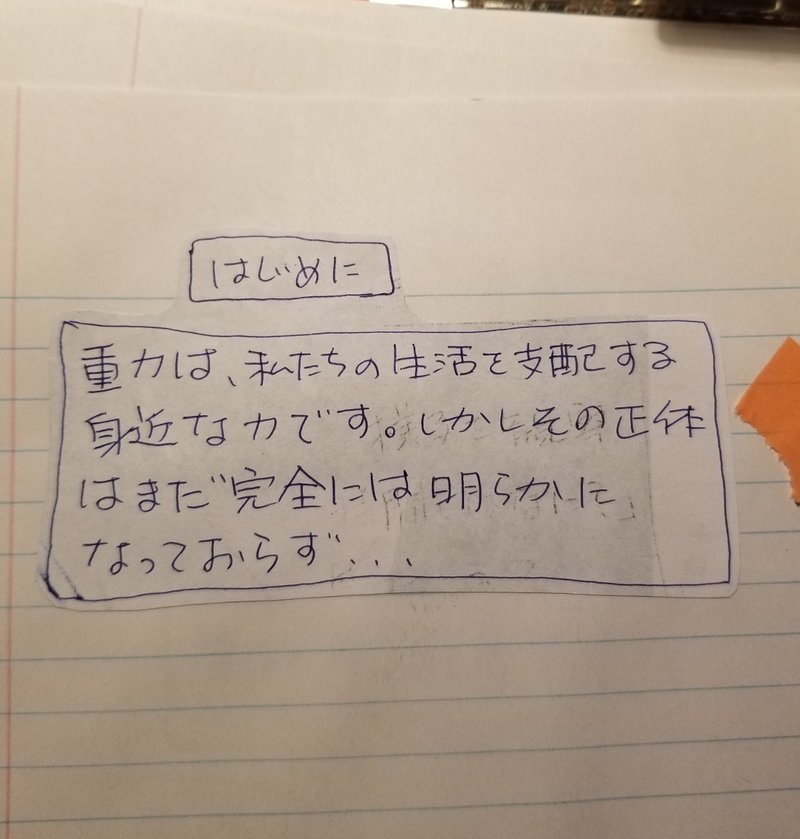 はじめに
重力は、私たちの生活を支配する
身近な力です。しかしその正体
はまだ完全には明らかに
なっておらず...